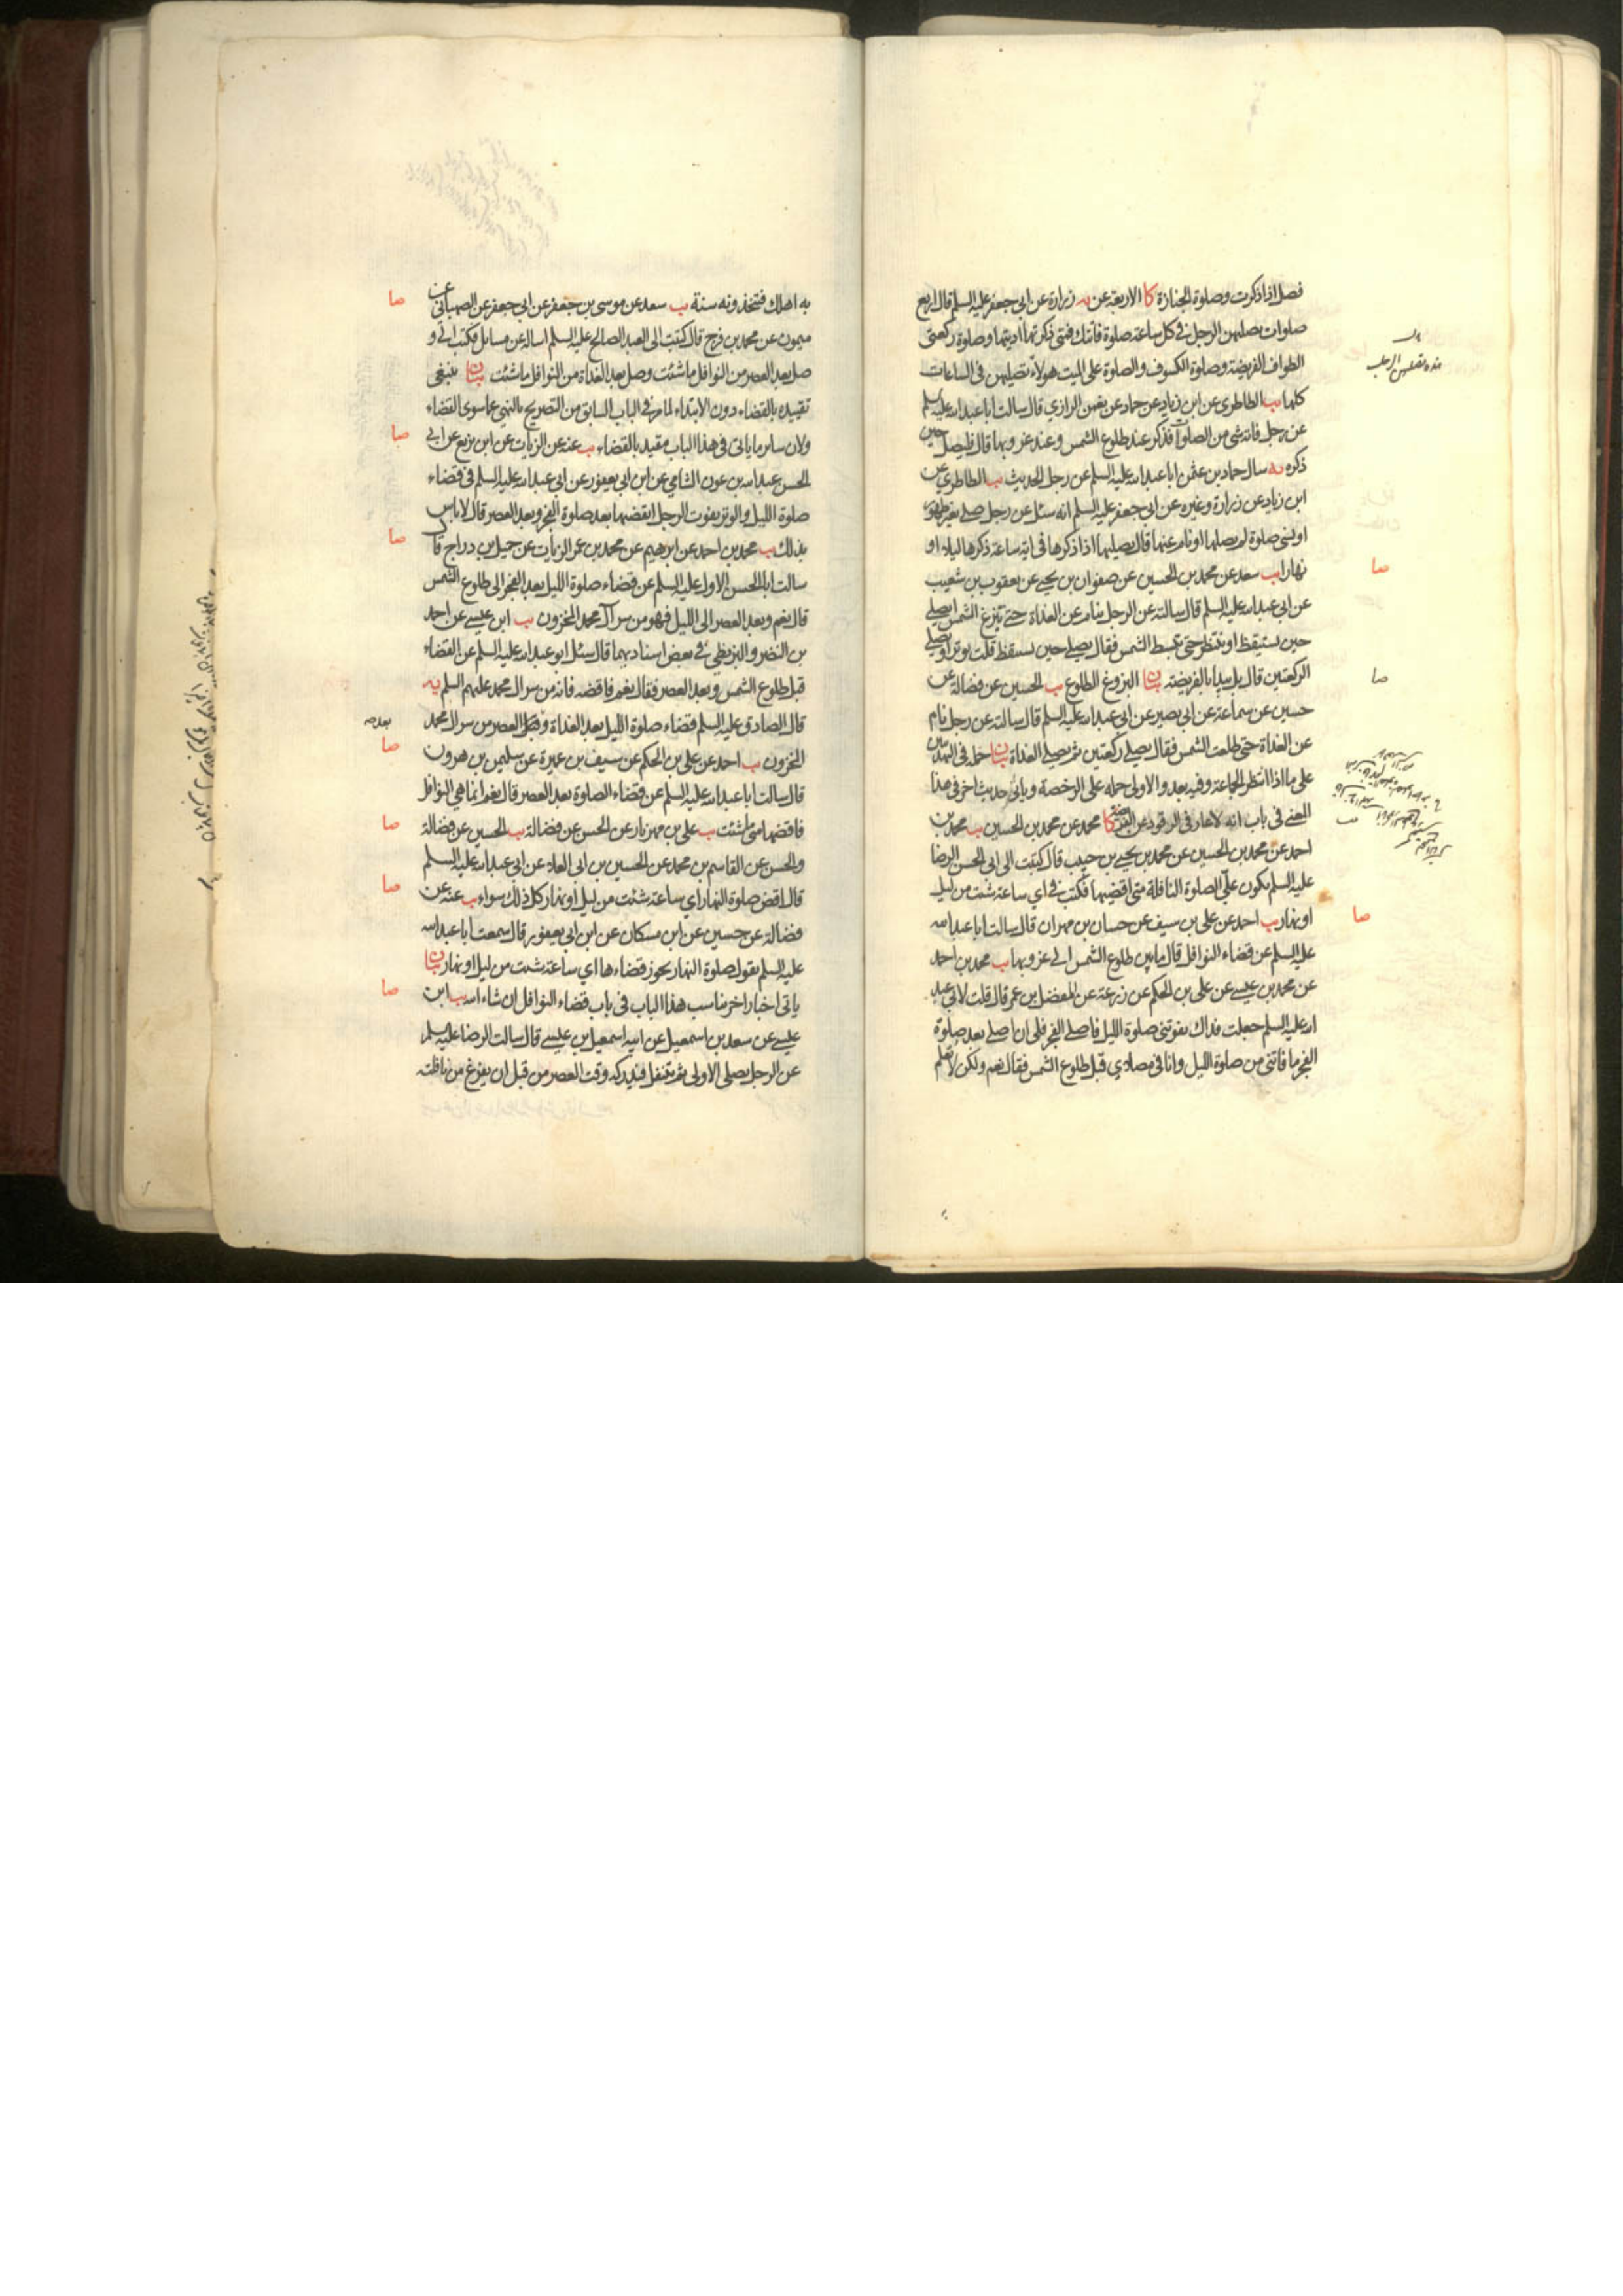 فصل اذا ذكرت وصلوة الجنازة كا الاربعة عن يه زرارة عن ابي جعفر عليه السلم قال اربع
صلوات يصليهن الرجل في كل ساعة صلوة فاتتك فمتى ذكرتها اديتها وصلوة ركعتي
الطواف الفريضة وصلوة الكسوف والصلوة على الميت هولاء تصليهن في الساعات
كلها يب الطاطري عن ابن زياد عن حماد عن نعمن الرازي قال سالت ابا عبد الله عليه السلم
عن رجل فاته شئ من الصلوات فذكر عند طلوع الشمس وعند غروبها قال فليصل حين
ذكره يه سال حماد بن عثمن ابا عبد الله عليه السلم عن رجل الحديث يب الطاطري عن
ابن زياد عن زرارة وغيره عن ابي جعفر عليه السلم انه سئل عن رجل صلى بغير طهور
او نسي صلوة لم يصلها او نام عنها قال يصليها اذا ذكرها في اية ساعة ذكرها ليلا او
نهارا يب سعد عن محمد بن الحسين عن صفوان بن يحيى عن يعقوب بن شعيب
صا
عن ابي عبد الله عليه السلم قال سالته عن الرجل ينام عن الغداة حتى تبزغ الشمس ايصلي
حين يستيقظ او ينتظر حتى تنبسط الشمس فقال يصلي حين يستيقظ قلت يوتر او يصلي
الركعتين قال بل يبدا بالفريضة بيان البزوغ الطلوع يب الحسين عن فضالة عن
صا
حسين عن سماعة عن ابي بصير عن ابي عبد الله عليه السلم قال سالته عن رجل نام
عن الغداة حتى طلعت الشمس فقال يصلي ركعتين ثم يصلي الغداة بيان حمله في التهذيبين
على ما اذا انتظر الجماعة وفيه بعد والاولى حمله على الرخصة وياتي حديث اخر في هذا
المعنى في باب انه لا عار في الرقود عن الفريضة كا محمد عن محمد بن الحسين يب محمد بن
احمد عن محمد بن الحسين عن محمد بن يحيى بن حبيب قال كتبت الى ابي الحسن الرضا
عليه السلم يكون علي الصلوة النافلة متى اقضيها فكتب في اي ساعة شئت من ليل
او نهار يب احمد عن علي بن سيف عن حسان بن مهران قال سالت ابا عبد الله
صا
عليه السلم عن قضاء النوافل قال ما بين طلوع الشمس الى غروبها يب محمد بن احمد
عن محمد بن عيسى عن علي بن الحكم عن زرعة عن المفضل بن عمر قال قلت لابي عبد
الله عليه السلم جعلت فداك تفوتني صلوة الليل فاصلي الفجر فلي ان اصلي بعد صلوة
الفجر ما فاتني من صلوة الليل وانا في مصلاي قبل طلوع الشمس فقال نعم ولكن لا تعلم
به اهلك فتتخذونه سنة يب سعد عن موسى بن جعفر عن ابي جعفر عن الصهباني عن
صا
ميمون عن محمد بن فرج قال كتبت الى العبد الصالح عليه السلم اساله عن مسايل فكتب الي و
صل بعد العصر من النوافل ما شئت وصل بعد الغداة من النوافل ما شئت بيان ينبغي
تقييده بالقضاء دون الابتداء لما مر في الباب السابق من التصريح بالنهي عما سوى القضاء
ولان ساير ما ياتي في هذا الباب مقيد بالقضاء يب عنه عن الزيات عن ابن بزيع عن ابي
صا
الحسن عبد الله بن عون الشامي عن ابن ابي يعفور عن ابي عبد الله عليه السلم في قضاء
صلوة الليل والوتر يفوت الرجل ايقضيها بعد صلوة الفجر وبعد العصر قال لا باس
بذلك يب محمد بن احمد عن ابرهيم عن محمد بن عمر الزيات عن جميل بن دراج قال
صا
سالت ابا الحسن الاول عليه السلم عن قضاء صلوة الليل بعد الفجر الى طلوع الشمس
قال نعم وبعد العصر الى الليل فهو من سر آل محمد المخزون يب ابن عيسى عن احمد
بن النضر والبزنطي في بعض اسناديهما قال سئل ابو عبد الله عليه السلم عن القضاء
قبل طلوع الشمس وبعد العصر فقال نعم فاقضه فانه من سر ال محمد عليهم السلم يه
قال الصادق عليه السلم قضاء صلوة الليل بعد الغداة وبعد العصر من سر ال محمد
المخزون يب احمد عن علي بن الحكم عن سيف بن عميرة عن سليمن بن هرون
صا
قال سالت ابا عبد الله عليه السلم عن قضاء الصلوة بعد العصر قال نعم انما هي النوافل
فاقضها متى ما شئت يب علي بن مهزيار عن الحسن عن فضالة يب الحسين عن فضالة
صا
والحسن عن القاسم بن محمد عن الحسين بن ابي العلاء عن ابي عبد الله عليه السلم
قال اقض صلوة النهار اي ساعة شئت من ليل او نهار كل ذلك سواء يب عنه عن
صا
فضالة عن حسين عن ابن مسكان عن ابن ابي يعفور قال سمعت ابا عبد الله
عليه السلم يقول صلوة النهار يجوز قضاءها اي ساعة شئت من ليل او نهار بيان
ياتي اخبار اخر تناسب هذا الباب في باب قضاء النوافل ان شاء الله يب ابن
صا
عيسى عن سعد بن اسمعيل عن ابيه اسمعيل بن عيسى قال سالت الرضا عليه السلم
عن الرجل يصلي الاولى ثم يتنفل فيدركه وقت العصر من قبل ان يفرغ من نافلته